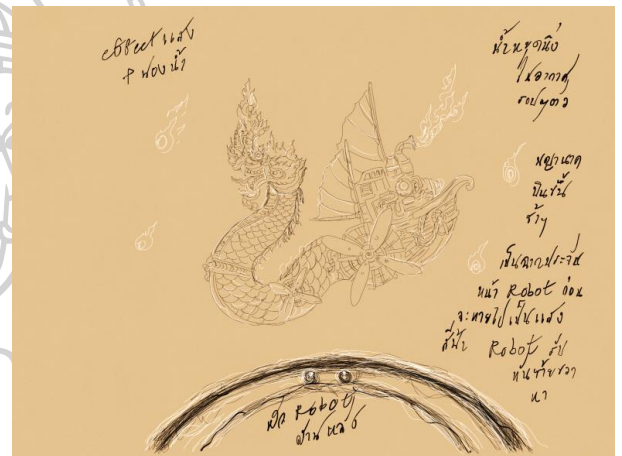 effect แสง
+ ฟองน้ำ
น้ำหยุดนิ่ง
ในอากาศ
รอบๆตัว
พญานาค
บินขึ้น
ช้าๆ
เป็นฉากประจัน
หน้า Robot ก่อน
จะหายไปเป็นแสง
สีฟ้า Robot
หันซ้ายขวา
หา
หัว Robot
ด้านหลัง